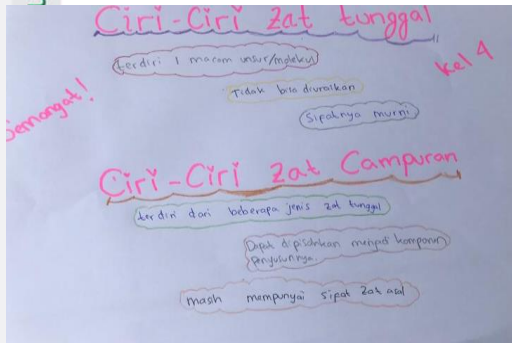 Ciri-Ciri zat tunggal
terdiri 1 macam unsur/molekul
Kel 4
Tidak bisa diuraikan
Semangat!
Sipatnya murni
Ciri-Ciri zat Campuran
terdiri dari beberapa jenis zat tunggal
Dapat dipisahkan menjadi komponen
penyusunnya.
masih mempunyai sipat zat asal